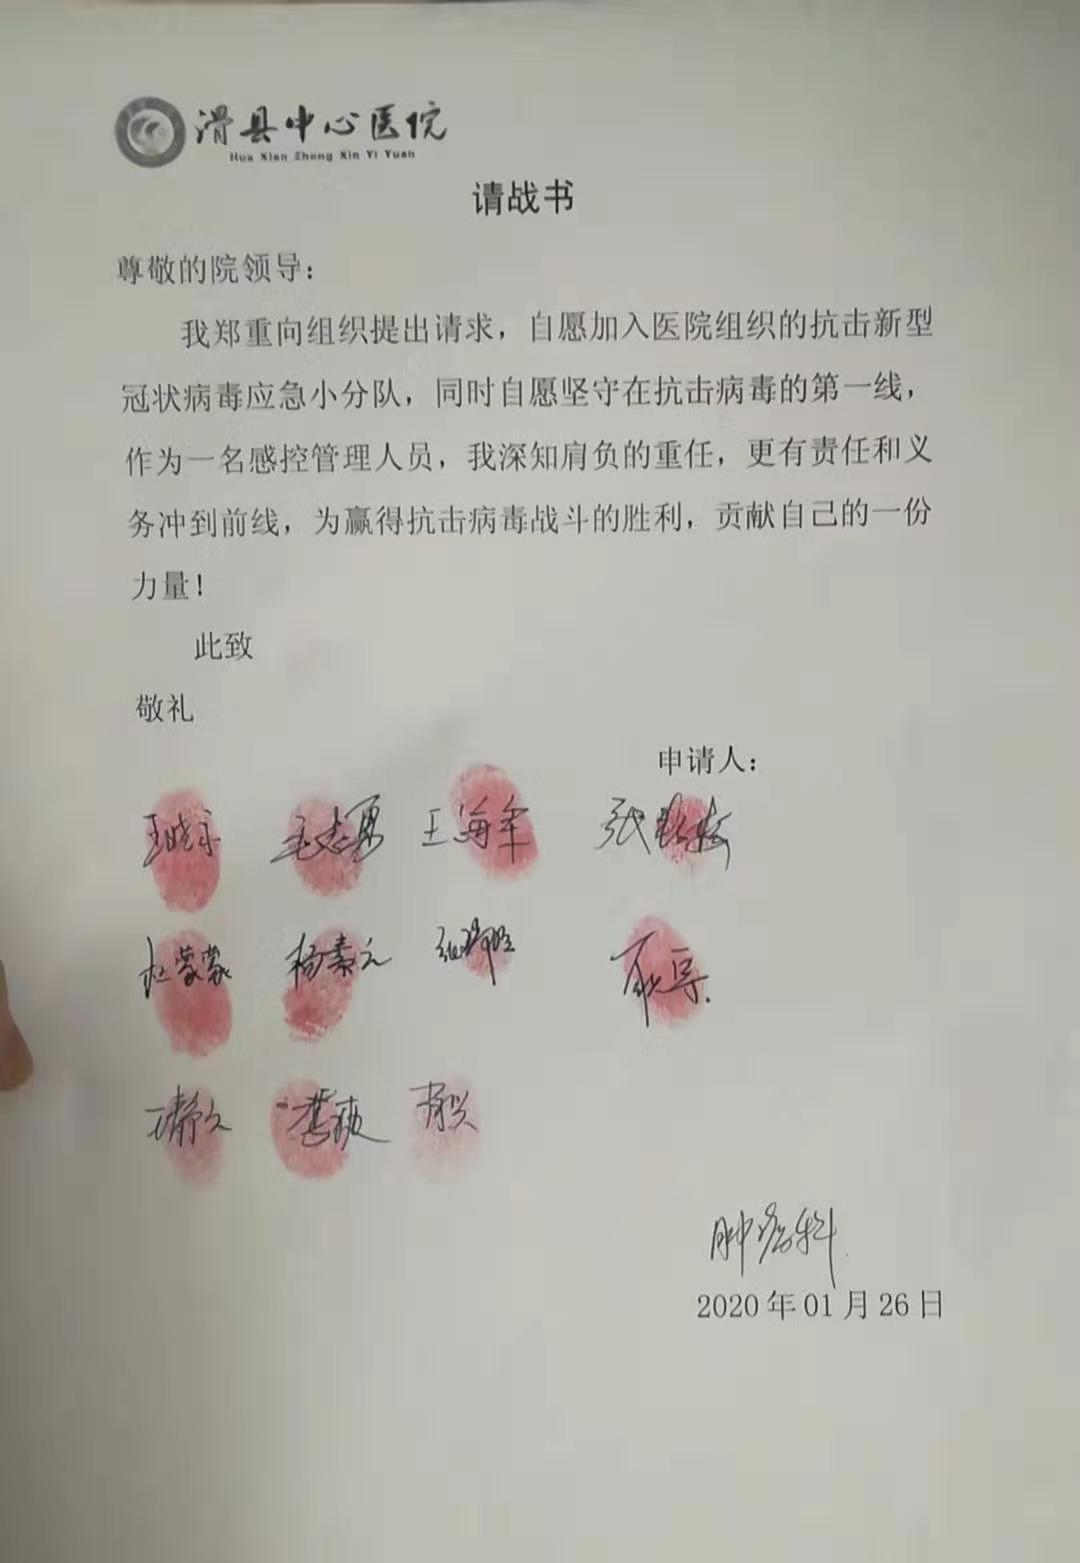 滑县中心医院
Hua Xian Zhong Xin Yi Yuan
请战书
尊敬的院领导：
我郑重向组织提出请求，自愿加入医院组织的抗击新型
冠状病毒应急小分队，同时自愿坚守在抗击病毒的第一线，
作为一名感控管理人员，我深知肩负的重任，更有责任和义
务冲到前线，为赢得抗击病毒战斗的胜利，贡献自己的一份
力量！
此致
敬礼
申请人：
毛志勇 王海军 张
赵蒙蒙 杨素元
肿瘤科
2020年01月26日